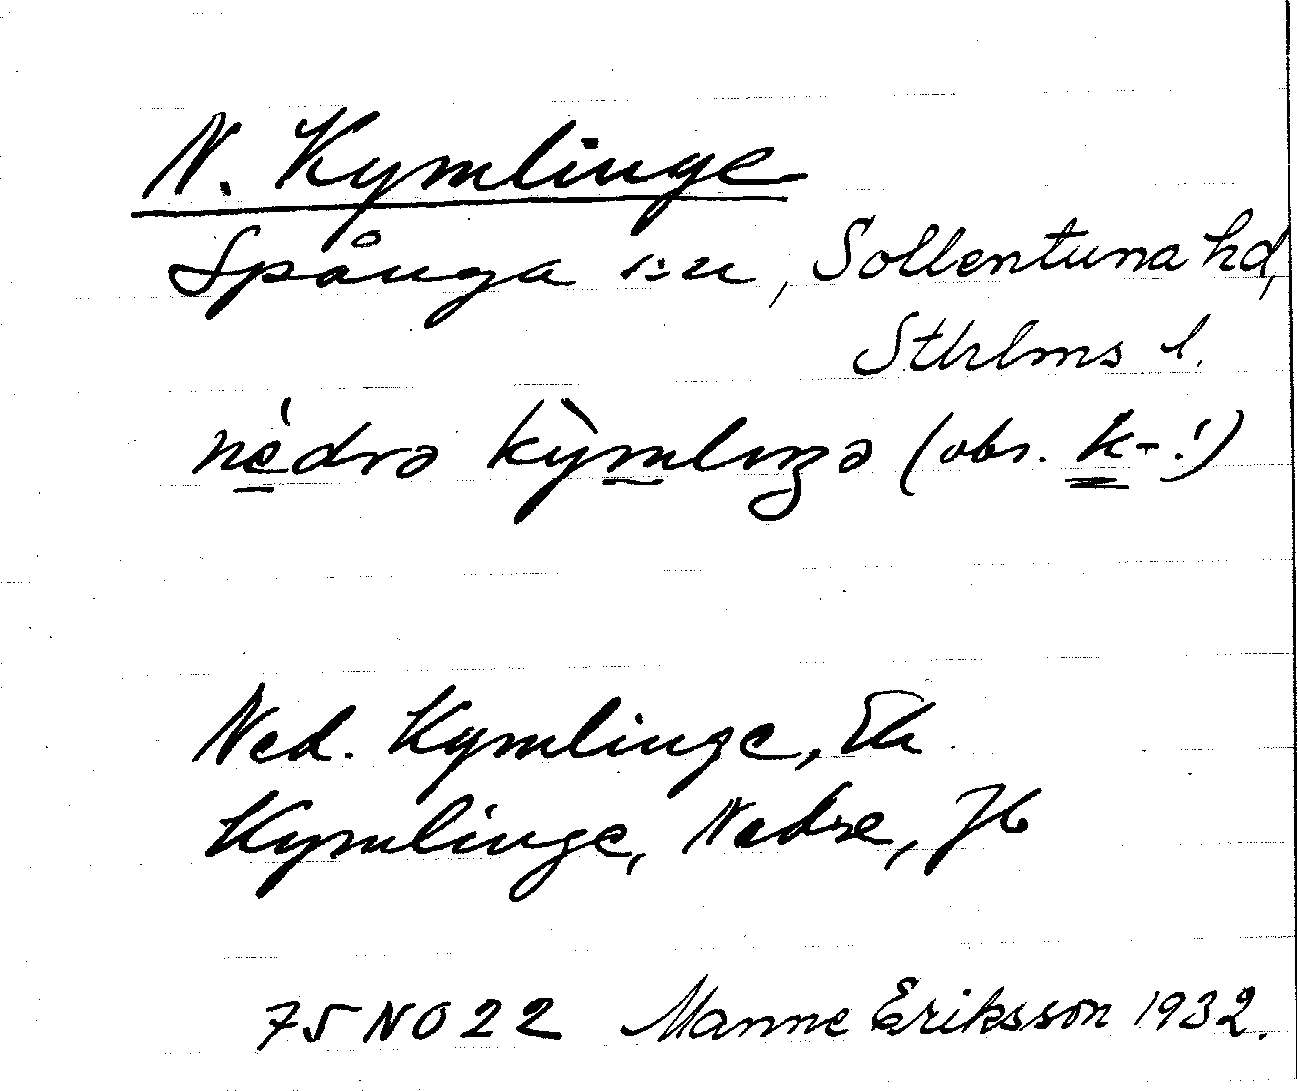 N. Kymlinge
Spånga sn, Sollentuna hd,
Sthlms l.
nédrə kỳmlıŋə (obs. k-!)
Ned. Kymlinge, Ek
Kymlinge, Nedre, Jb
75 NO 22 Manne Eriksson 1932.